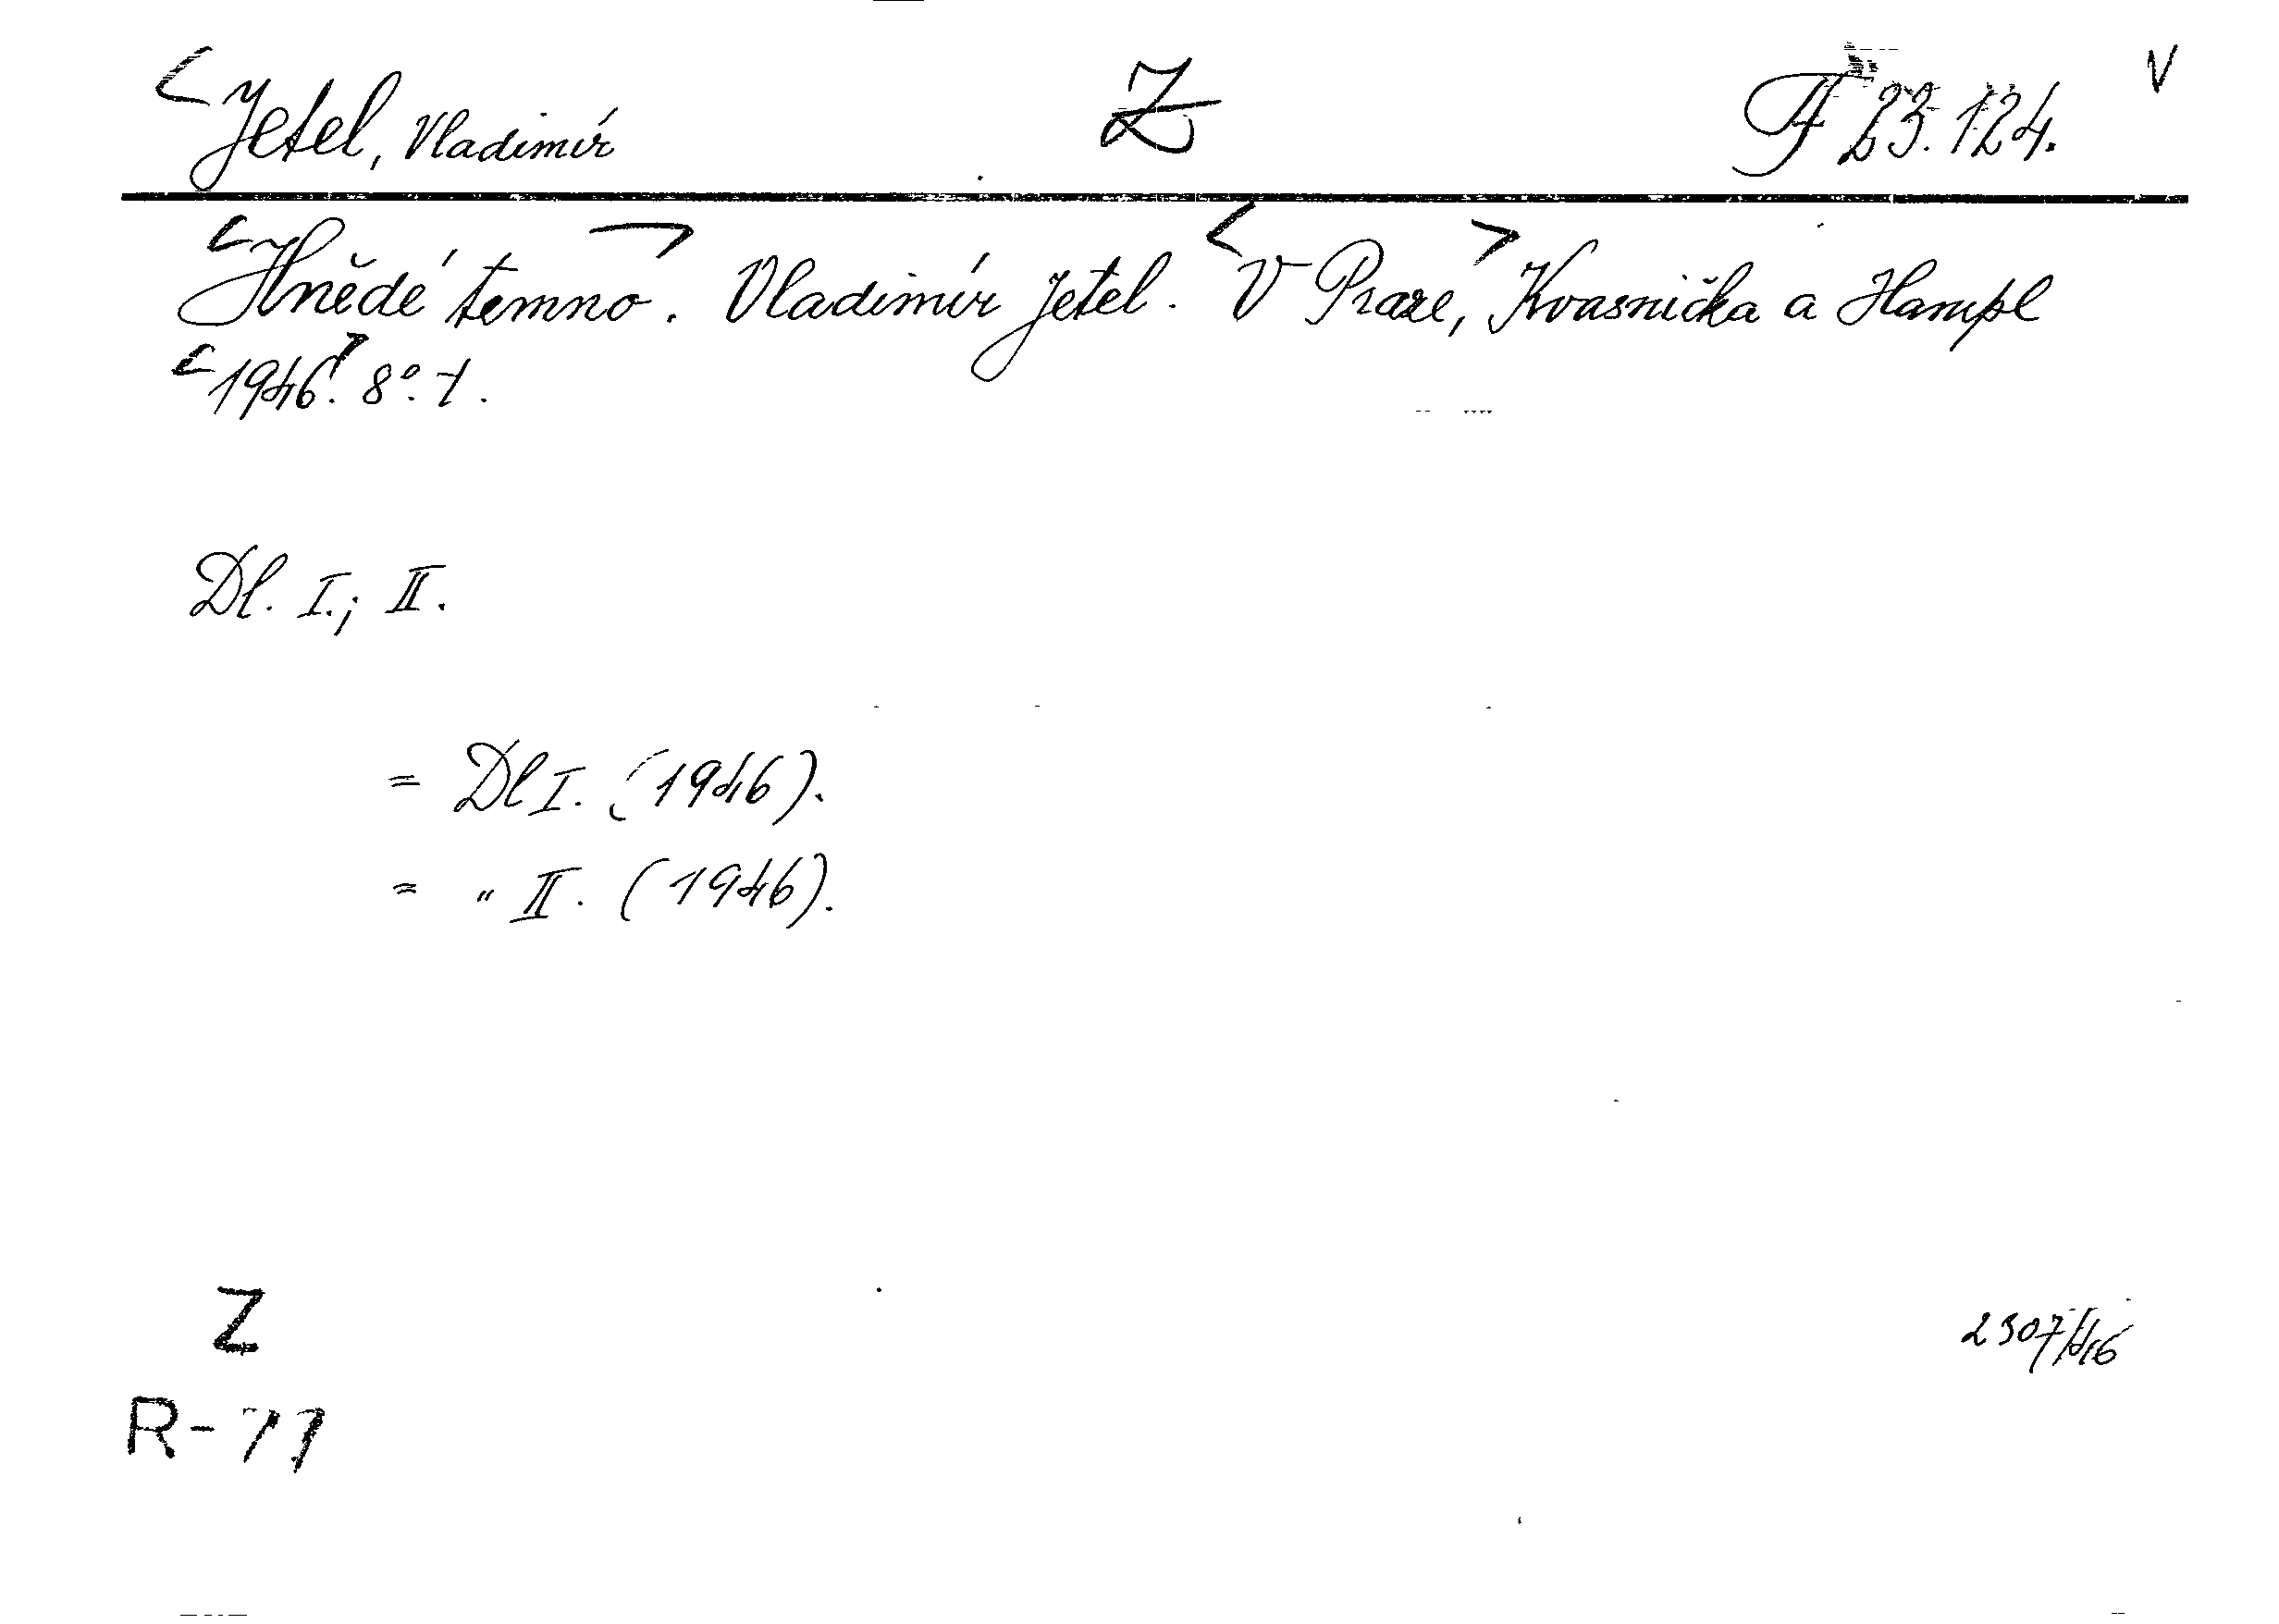 Jetel, Vladimír Z F 23.124. V
Hnědé temno. Vladimír Jetel. V Praze, Kvasnička a Hampl
1946. 8°. t.
Dl. I.; II.
= Dl I. (1946).
= " II. (1946).
Z
2307/46
R-77